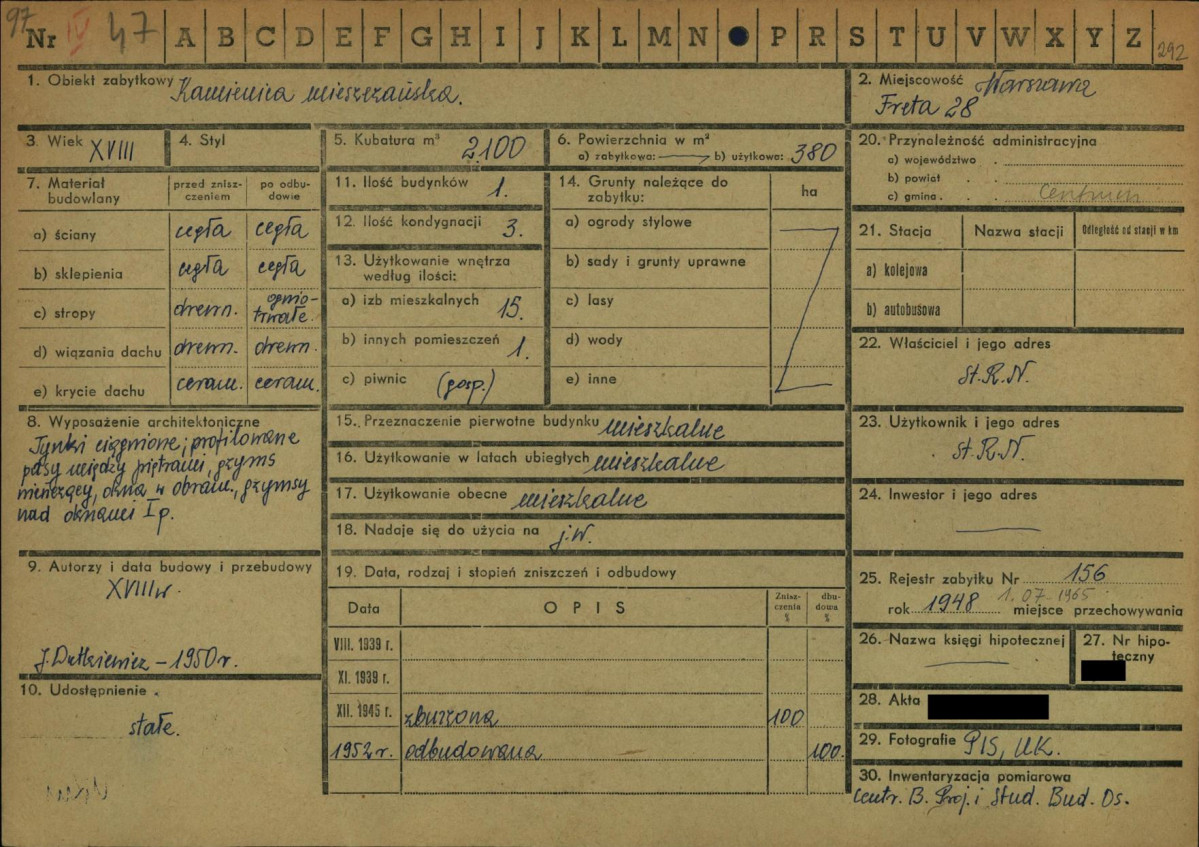 97
Nr IV 47 A B C D E F G H I J K L M N P R S T U V W X Y Z 292
1. Obiekt zabytkowy Kamienica mieszczańska.
2. Miejscowość Warszawa
Freta 28
3. Wiek XVIII
4. Styl
5. Kubatura m³ 2100
6. Powierzchnia w m²
a) zabytkowa: b) użytkowa: 380
7. Materiał budowlany
przed zniszczeniem
po odbudowie
a) ściany cegła cegła
b) sklepienia cegła cegła
c) stropy drewn. ogniotrwałe
d) wiązania dachu drewn. drewn.
e) krycie dachu ceram. ceram.
8. Wyposażenie architektoniczne
Tynki ciągnione; profilowane
pasy między piętrami, gzyms
wieńczący, okna w obram., gzymsy
nad oknami I p.
9. Autorzy i data budowy i przebudowy
XVIII w.
J. Dutkiewicz – 1950 r.
10. Udostępnienie
stałe.
11. Ilość budynków 1.
12. Ilość kondygnacji 3.
13. Użytkowanie wnętrza
według ilości:
a) izb mieszkalnych 15.
b) innych pomieszczeń 1.
c) piwnic (gosp.)
14. Grunty należące do
zabytku:
ha
a) ogrody stylowe
b) sady i grunty uprawne
c) lasy
d) wody
e) inne
15. Przeznaczenie pierwotne budynku mieszkalne
16. Użytkowanie w latach ubiegłych mieszkalne
17. Użytkowanie obecne mieszkalne
18. Nadaje się do użycia na j.w.
19. Data, rodzaj i stopień zniszczeń i odbudowy
Data OPIS Zniszczenia % dbudowa %
VIII. 1939 r.
XI. 1939 r.
XII. 1945 r. zburzona 100
1952 r. odbudowana 100.
20. Przynależność administracyjna
a) województwo
b) powiat
c) gmina Centrum
21. Stacja Nazwa stacji Odległość od stacji w km
a) kolejowa
b) autobusowa
22. Właściciel i jego adres
St. R. N.
23. Użytkownik i jego adres
St. R. N.
24. Inwestor i jego adres
25. Rejestr zabytku Nr 156
1.07.1965
rok 1948 miejsce przechowywania
26. Nazwa księgi hipotecznej
27. Nr hipoteczny
28. Akta
29. Fotografie PIS, UK.
30. Inwentaryzacja pomiarowa
Centr. B. Proj. i Stud. Bud. Os.